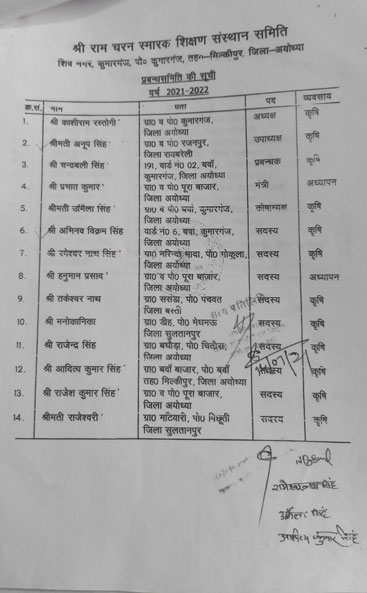 श्री राम चरन स्मारक शिक्षण संस्थान समिति
शिव नगर, कुमारगंज, पो० कुमारगंज, तह०–मिल्कीपुर, जिला–अयोध्या
प्रबन्धसमिति की सूची
वर्ष 2021-2022
क्र.सं. नाम पता पद व्यवसाय
1. श्री काशीराम रस्तोगी ग्रा० व पो० कुमारगंज, अध्यक्ष कृषि
जिला अयोध्या
2. श्रीमती अनूप सिंह ग्रा० व पो० रजनपुर, उपाध्यक्ष कृषि
जिला रायबरेली
3. श्री चन्द्रबली सिंह 191, वार्ड नं० 02, बवाँ, प्रबन्धक कृषि
कुमारगंज, जिला अयोध्या
4. श्री प्रभात कुमार ग्रा० व पो० पूरा बाजार, मंत्री अध्यापन
जिला अयोध्या
5. श्रीमती उर्मिला सिंह ग्रा० व पो० बवाँ, कुमारगंज, कोषाध्यक्ष कृषि
जिला अयोध्या
6. श्री अभिनव विक्रम सिंह वार्ड नं० 6, बवाँ, कुमारगंज, सदस्य कृषि
जिला अयोध्या
7. श्री रमेश्वर नाथ सिंह ग्रा० पो० गोकुला, सदस्य कृषि
जिला अयोध्या
8. श्री हनुमान प्रसाद ग्रा० व पो० पूरा बाजार, सदस्य अध्यापन
जिला अयोध्या
9. श्री तकेश्वर नाथ ग्रा० ससंडा, पो० पंचवत सदस्य कृषि
जिला बस्ती
10. श्री मनोकानिका ग्रा० डीह, पो० मेघमऊ सदस्य कृषि
जिला सुलतानपुर
11. श्री राजेन्द्र सिंह ग्रा० बघौड़ा, पो० सदस्य कृषि
जिला अयोध्या
12. श्री आदित्य कुमार सिंह ग्रा० बवाँ बाजार, पो० बवाँ सदस्य कृषि
तह० मिल्कीपुर, जिला अयोध्या
13. श्री राजेश कुमार सिंह ग्रा० व पो० पूरा बाजार, सदस्य कृषि
जिला अयोध्या
14. श्रीमती राजेश्वरी ग्रा० मटियारी, पो० सदस्य कृषि
जिला सुलतानपुर